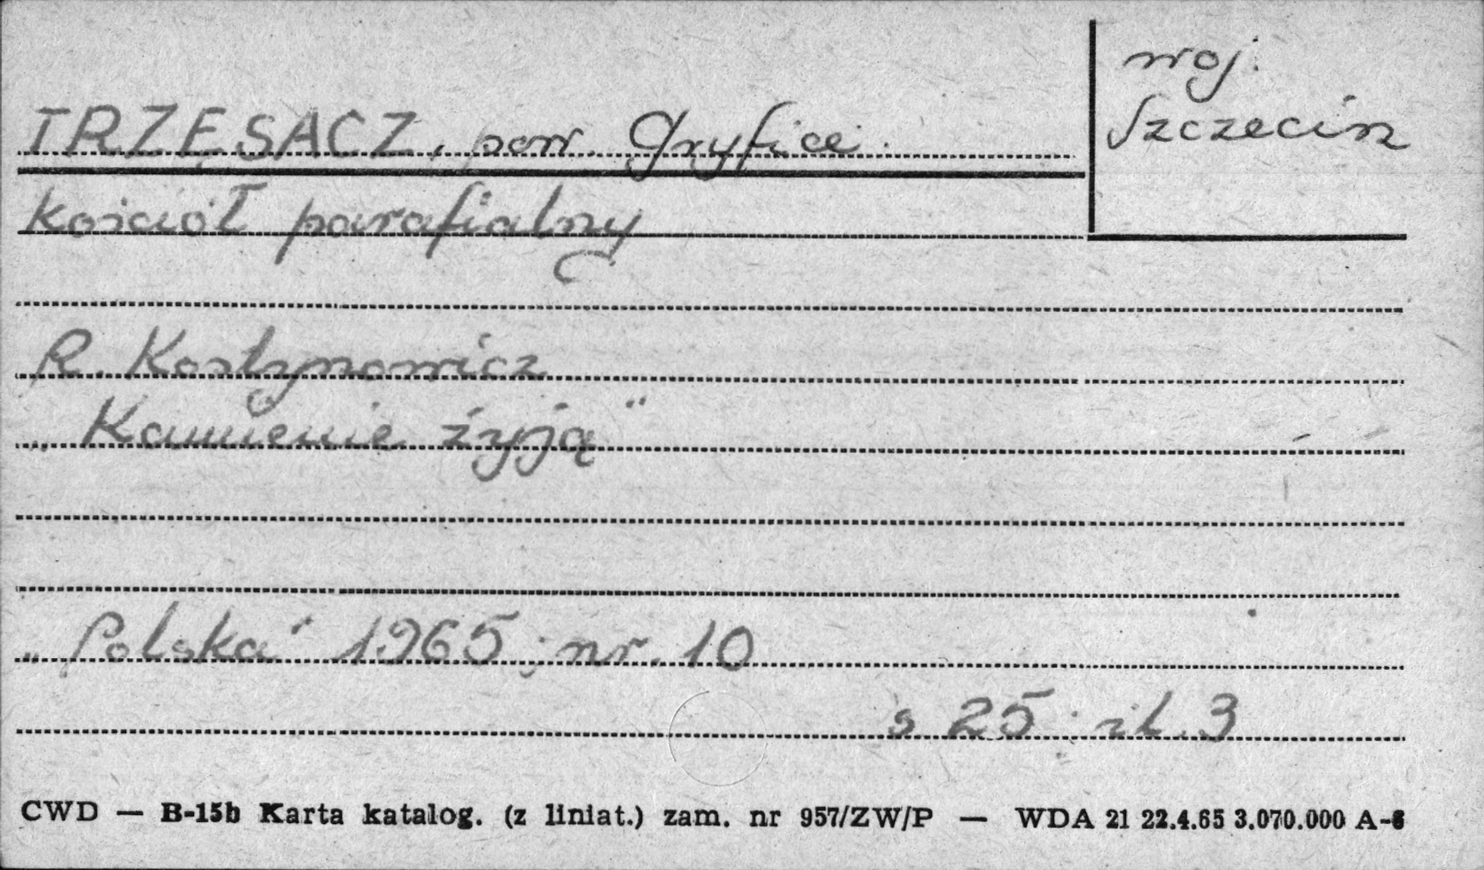 woj.
Szczecin
TRZĘSACZ, pow. Gryfice.
kościół parafialny
R. Kostynowicz
„Kamienie żyją"
„Polska" 1965; nr. 10
s 25; il. 3
CWD — B-15b Karta katalog. (z liniat.) zam. nr 957/ZW/P — WDA 21 22.4.65 3.070.000 A-6